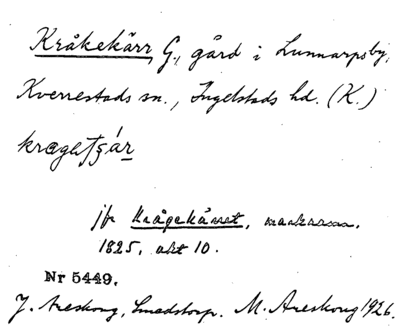 Kråkekärr, G., gård i Lunnarpsby,
Kverrestads sn., Ingelstads hd. (K.)
jfr Krågekärret,
1825, akt 10.
Nr 5449.
J. Areskoug, Smedstorp. M. Areskoug 1926.